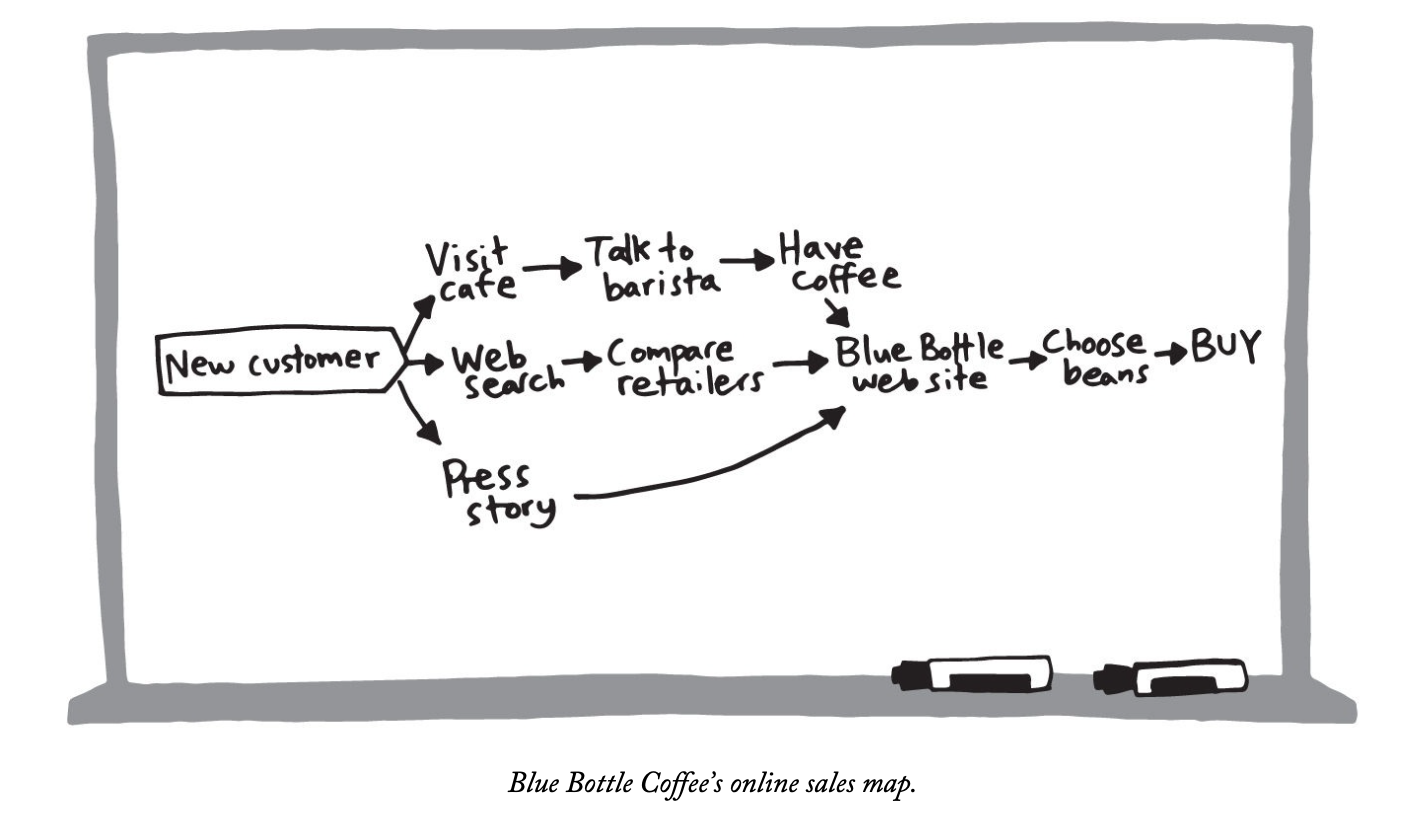 Visit
cafe
Talk to
barista
Have
coffee
New customer
Web
search
Compare
retailers
Blue Bottle
web site
Choose
beans
BUY
Press
story
Blue Bottle Coffee’s online sales map.